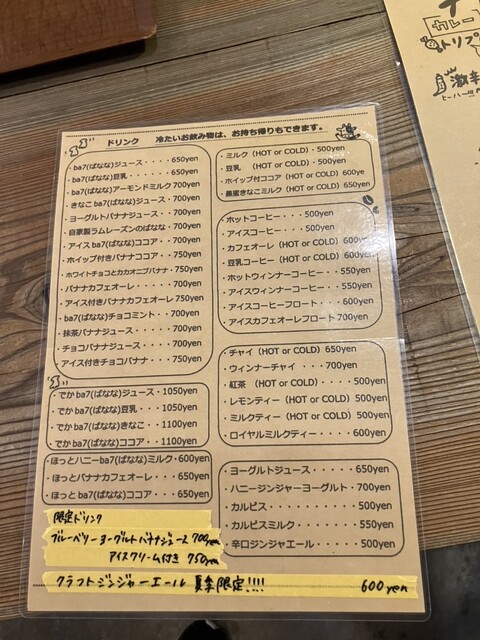 ドリンク 冷たいお飲み物は、お持ち帰りもできます。
・ba7(ばなな)ジュース・・・・650yen
・ba7(ばなな)豆乳・・・・650yen
・ba7(ばなな)アーモンドミルク 700yen
・きなこba7(ばなな)ジュース・700yen
・ヨーグルトバナナジュース・・700yen
・自家製ラムレーズンのばなな・700yen
・アイスba7(ばなな)ココア・・700yen
・ホイップ付きバナナココア・・750yen
・ホワイトチョコとカカオニブバナナ・750yen
・バナナカフェオーレ・・・・700yen
・アイス付きバナナカフェオーレ 750yen
・ba7(ばなな)チョコミント・・700yen
・抹茶バナナジュース・・・・700yen
・チョコバナナジュース・・・700yen
・アイス付きチョコバナナ・・750yen
・でかba7(ばなな)ジュース・1050yen
・でかba7(ばなな)豆乳・・・1050yen
・でかba7(ばなな)きなこ・・1100yen
・でかba7(ばなな)ココア・・1100yen
・ほっとハニーba7(ばなな)ミルク・600yen
・ほっとバナナカフェオーレ・・650yen
・ほっとba7(ばなな)ココア・・650yen
・ミルク（HOT or COLD）・500yen
・豆乳（HOT or COLD）・500yen
・ホイップ付ココア（HOT or COLD）600yen
・黒蜜きなこミルク（HOT or COLD）650ye
・ホットコーヒー・・・500yen
・アイスコーヒー・・・500yen
・カフェオーレ（HOT or COLD）600yen
・豆乳コーヒー（HOT or COLD）600yen
・ホットウィンナーコーヒー・・550yen
・アイスウィンナーコーヒー・・550yen
・アイスコーヒーフロート・・・600yen
・アイスカフェオーレフロート700yen
・チャイ（HOT or COLD）650yen
・ウィンナーチャイ・・・700yen
・紅茶（HOT or COLD）・・・500yen
・レモンティー（HOT or COLD）500yen
・ミルクティー（HOT or COLD）500yen
・ロイヤルミルクティー・・・・600yen
・ヨーグルトジュース・・・・・650yen
・ハニージンジャーヨーグルト・700yen
・カルピス・・・・・・・・・500yen
・カルピスミルク・・・・・・550yen
・辛口ジンジャエール・・・・500yen
限定ドリンク
ブルーベリーヨーグルトバナナジュース 700yen
アイスクリーム付き 750yen
クラフトジンジャーエール 夏季限定!!!! 600yen
カレー
トリプ
激辛
ヒーハー!!!